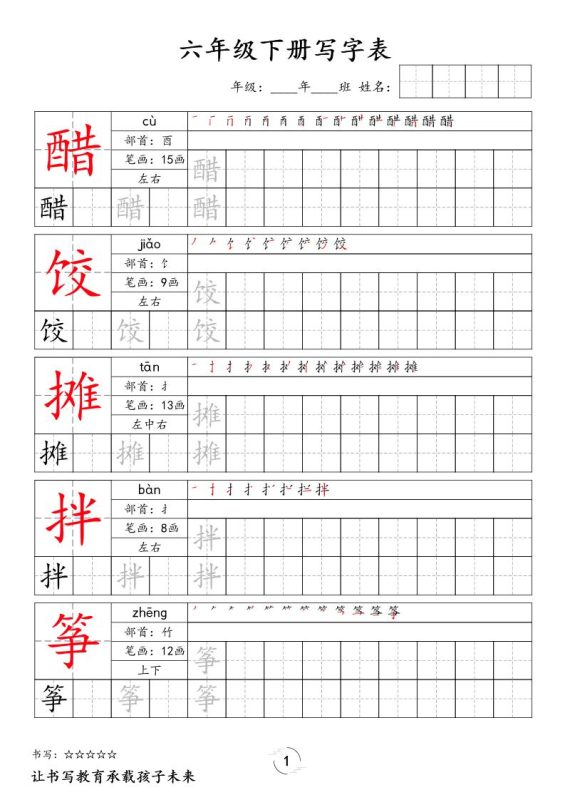 六年级下册写字表
年级：____年____班 姓名：
醋
cù
部首：酉
笔画：15画
左右
醋
醋 醋 醋
饺
jiǎo
部首：饣
笔画：9画
左右
饺
饺 饺 饺
摊
tān
部首：扌
笔画：13画
左中右
摊
摊 摊 摊
拌
bàn
部首：扌
笔画：8画
左右
拌
拌 拌 拌
筝
zhēng
部首：竹
笔画：12画
上下
筝
筝 筝 筝
书写：☆☆☆☆☆
让书写教育承载孩子未来
1